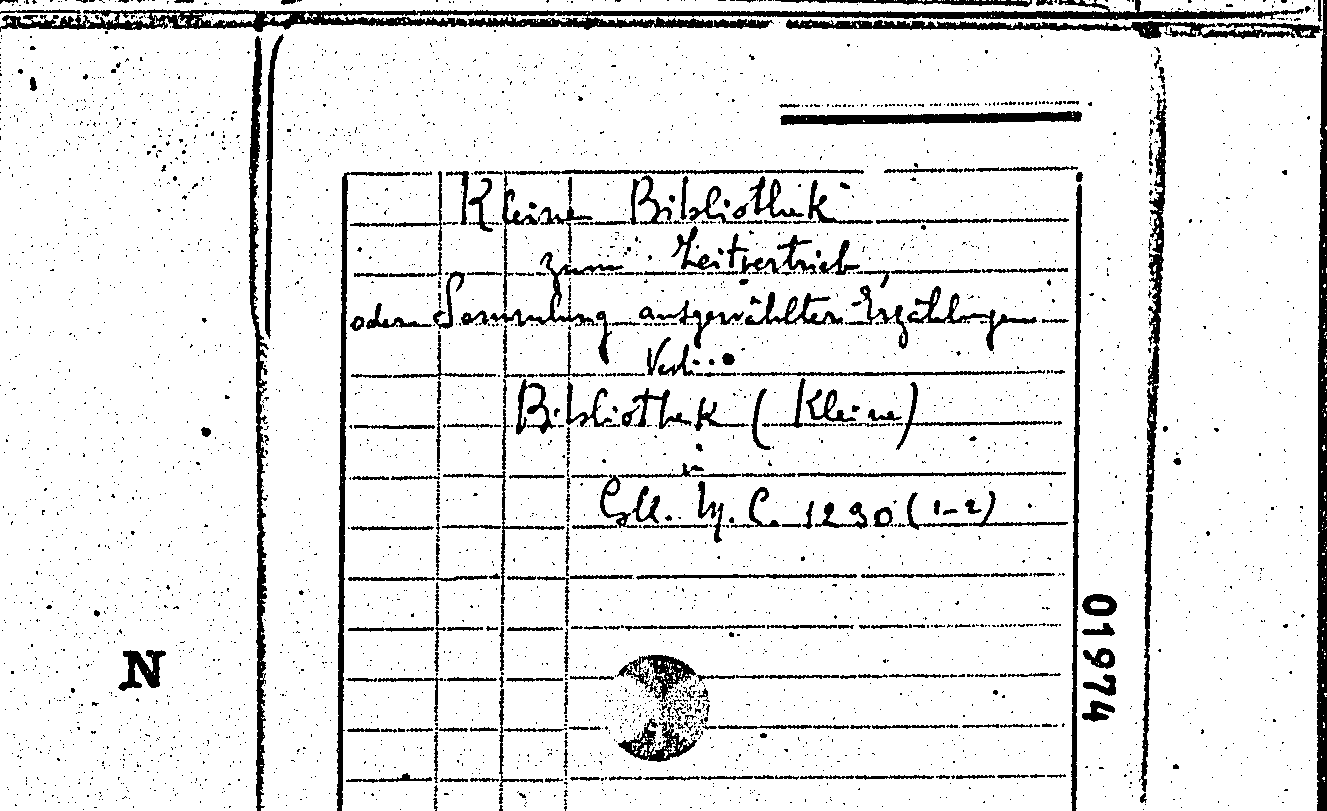 Kleine Bibliothek
zum Zeitvertrieb,
oder Sammlung ausgewählter Erzählungen
Bibliothek (Kleine)
in
Coll. M. C. 1290 (1-2)
N
01974